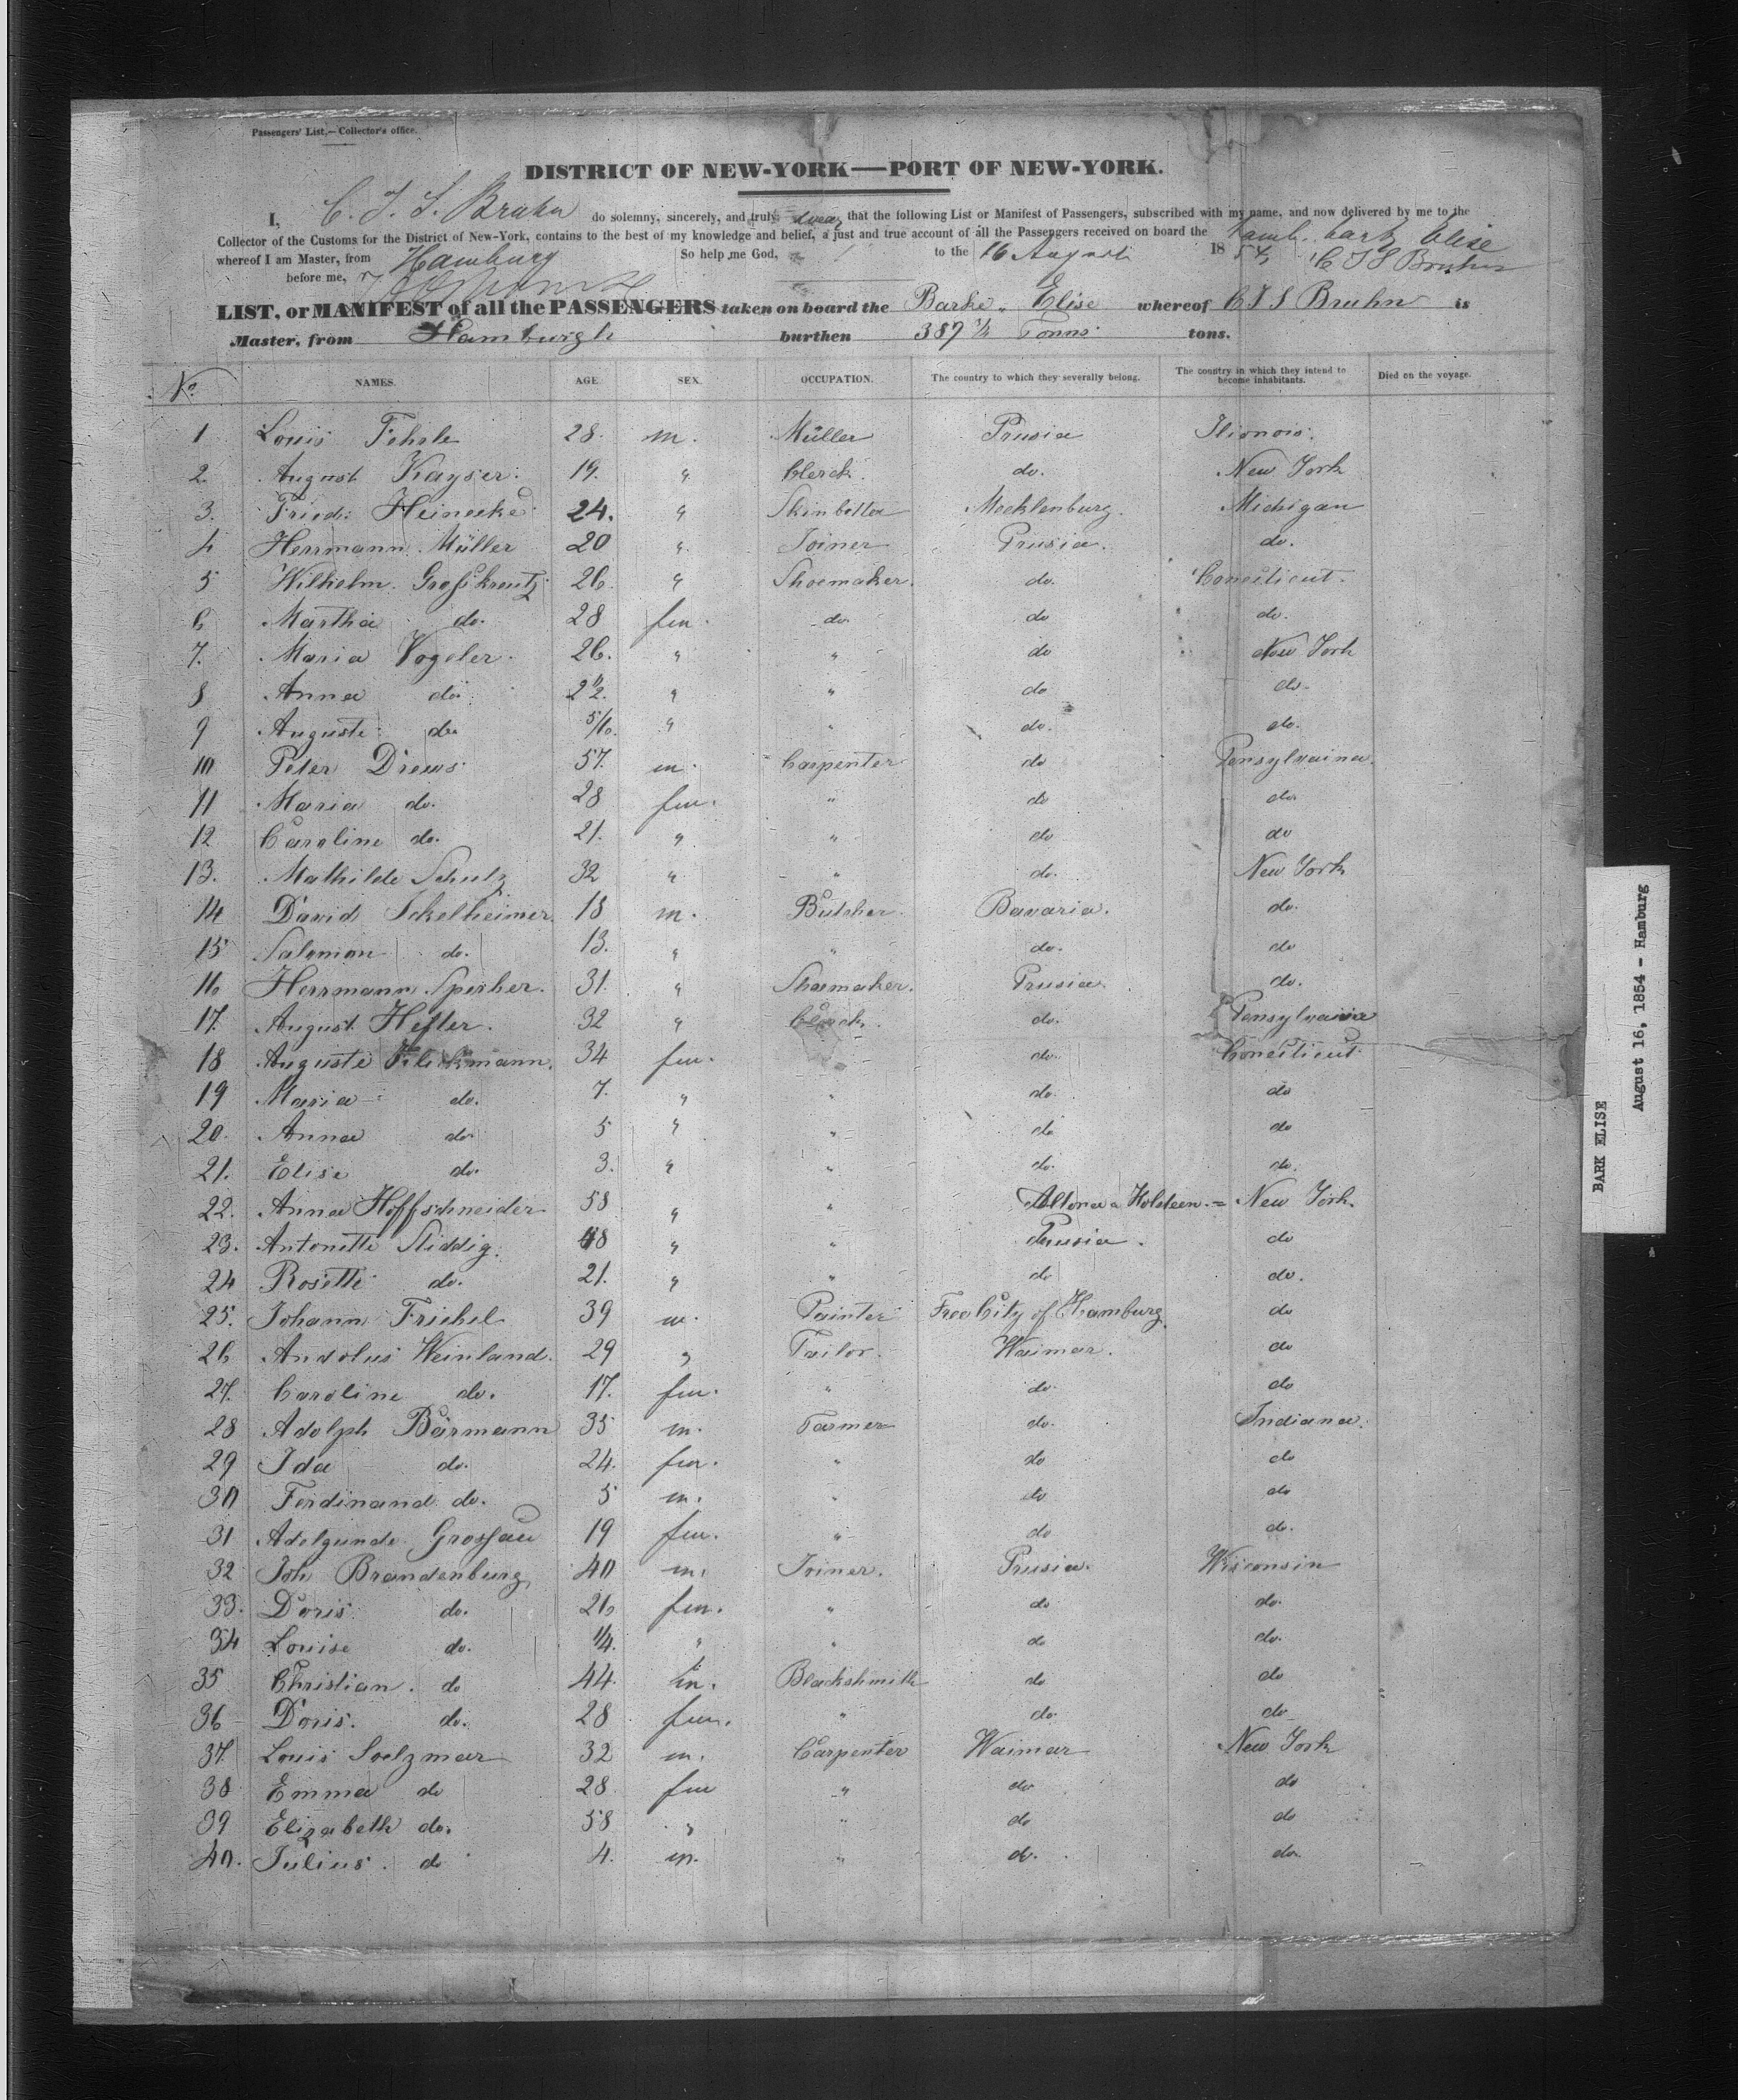 Passengers' List,—Collector's office.
DISTRICT OF NEW-YORK—PORT OF NEW-YORK.
I, C. J. S. Bruhn do solemny, sincerely, and truly swear that the following List or Manifest of Passengers, subscribed with my name, and now delivered by me to the
Collector of the Customs for the District of New-York, contains to the best of my knowledge and belief, a just and true account of all the Passengers received on board the Hamb. bark Elise
whereof I am Master, from Hamburg So help me God, to the 16 August 1854 C J S Bruhn
before me,
LIST, or MANIFEST of all the PASSENGERS taken on board the Barke „ Elise whereof C J S Bruhn is
Master, from Hamburgh burthen 387 1/2 Tonns tons.
No. NAMES. AGE. SEX. OCCUPATION. The country to which they severally belong. The country in which they intend to become inhabitants. Died on the voyage.
1 Louis Fehrle 28. m. Müller Prusia Ilionois.
2. August Kayser. 19. " Clerck. do. New York
3. Friedr. Heinecke 24. " Mecklenburg. Michigan
4 Herrmann Müller 20 " Joiner Prusia. do.
5 Wilhelm Großkreutz 26. " Shoemaker. do. Conecticut.
6 Martha do. 28 fem. do. do do.
7. Maria Vogeler. 26. " " do New York
8 Anna do. 2 1/2. " " do do.
9 Auguste do. 5/10. " " do. do.
10 Peter Drews 57. m. Carpenter do Pensylvaina.
11 Maria do. 28 fem. " do do.
12 Caroline do. 21. " " do do
13. Mathilde Schulz 32 " " do. New York
14 David Ickelheimer. 18 m. Butcher. Bavaria. do.
15 Salomon do. 13. " " do. do
16 Herrmann Sperber. 31. " Shoemaker. Prusia. do.
17. August Hefter. 32 " Clerck. do. Pensylvania
18 Auguste 34 fem. do. Conecticut.
19 Maria do. 7. " " do. do
20. Anna do. 5 " " do do
21. Elise do. 3. " " do. do.
22. Anna Hoffschneider 58 " " Altona Holsteen. = New York.
23. Antonette Sliddig. 48 " " Prusia. do
24 Rosette do. 21. " " do do.
25. Johann Friebel 39 m. Painter Free City of Hamburg. do
26 Andolus Weinland. 29 " Tailor. Waimar. do
27. Caroline do. 17. fem. " do. do
28 Adolph Bärmann 35 m. Farmer do. Indiana.
29 Ida do. 24. fem. " do do
30 Ferdinand do. 5 m. " do do
31 Adelgunde Grossau 19 fem. " do do.
32 Joh Brandenburg 40 m. Joiner. Prusia. Wisconsin
33. Doris do. 26 fem. " do do.
34 Louise do. 1/4. " " do do.
35 Christian. do 44. m. Blackshmith do do
36 Doris. do. 28 fem. " do. do
37. Louis Soelzmar 32 m. Carpenter Waimar New York
38 Emma do 28 fem " do do
39 Elizabeth do. 58 " " do do
40. Julius. do 4. m. " do. do.
BARK ELISE
August 16, 1854 - Hamburg